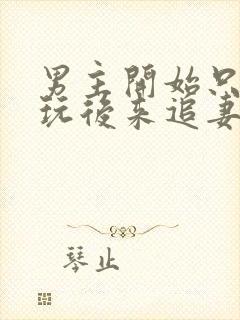 男主開始只
玩後来追妻
琴止